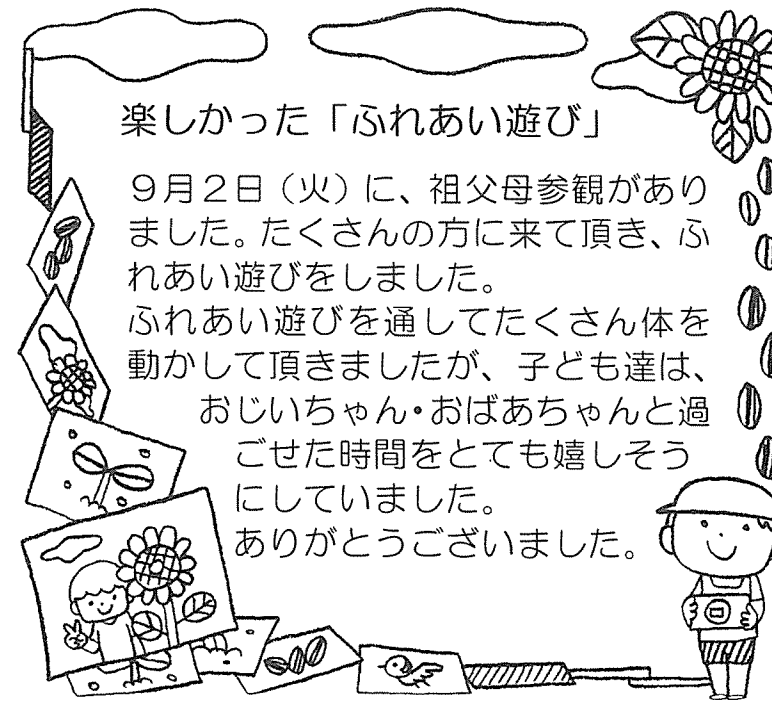 楽しかった「ふれあい遊び」
９月２日（火）に、祖父母参観があり
ました。たくさんの方に来て頂き、ふ
れあい遊びをしました。
ふれあい遊びを通してたくさん体を
動かして頂きましたが、子ども達は、
おじいちゃん・おばあちゃんと過
ごせた時間をとても嬉しそう
にしていました。
ありがとうございました。